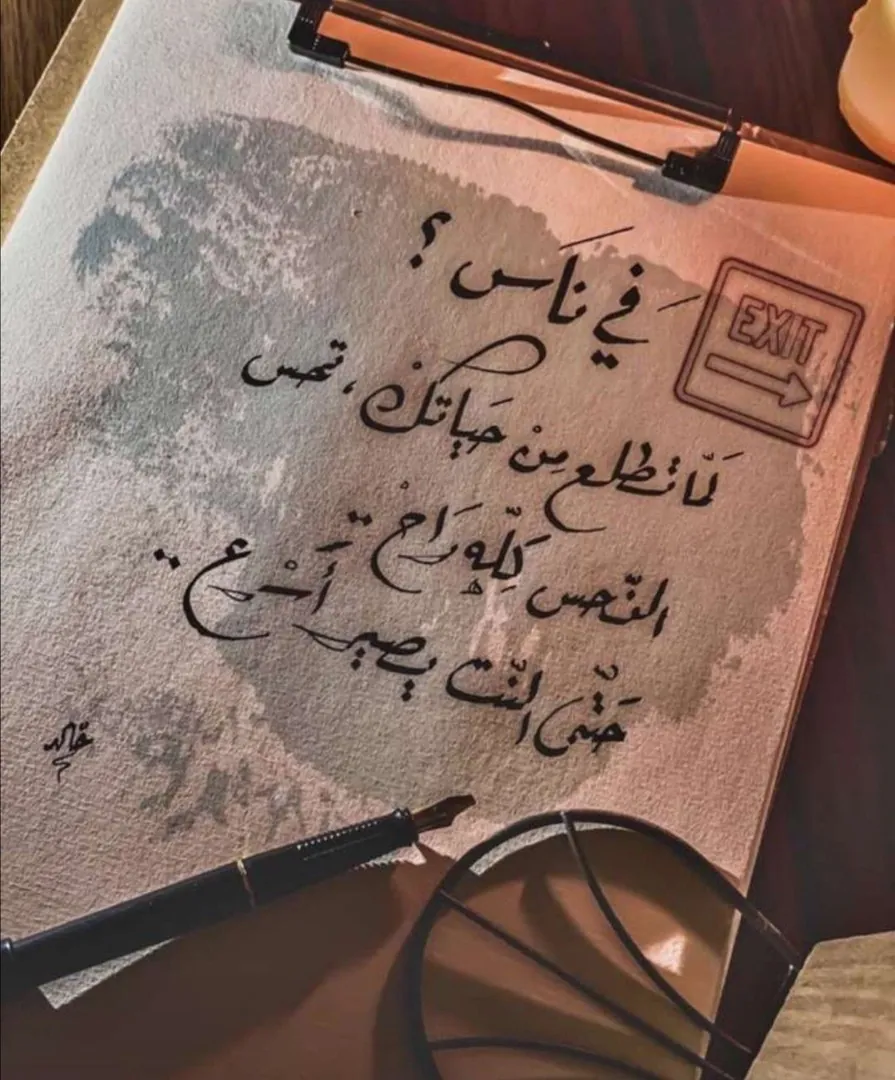 فَي نَاس ؟
EXIT
لَمّا تطلع مِنْ حَياتكْ ، تحس
النّحس كِلّه رَاحْ ..
حَتّى النّت يصير أَسْرع ..
خالد